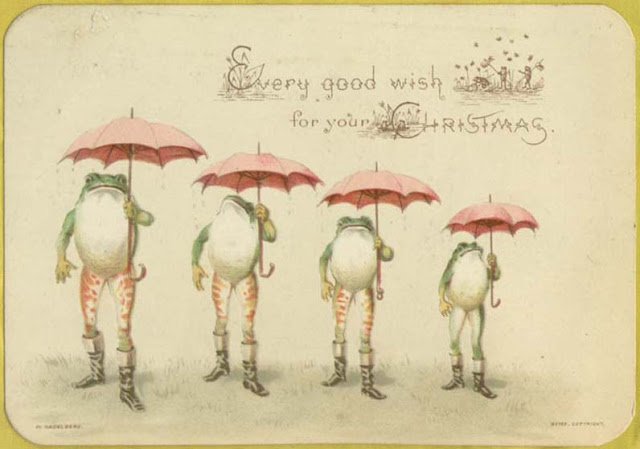 Every good wish
for your CHRISTMAS.
W. HAGELBERG.
COPYRIGHT.